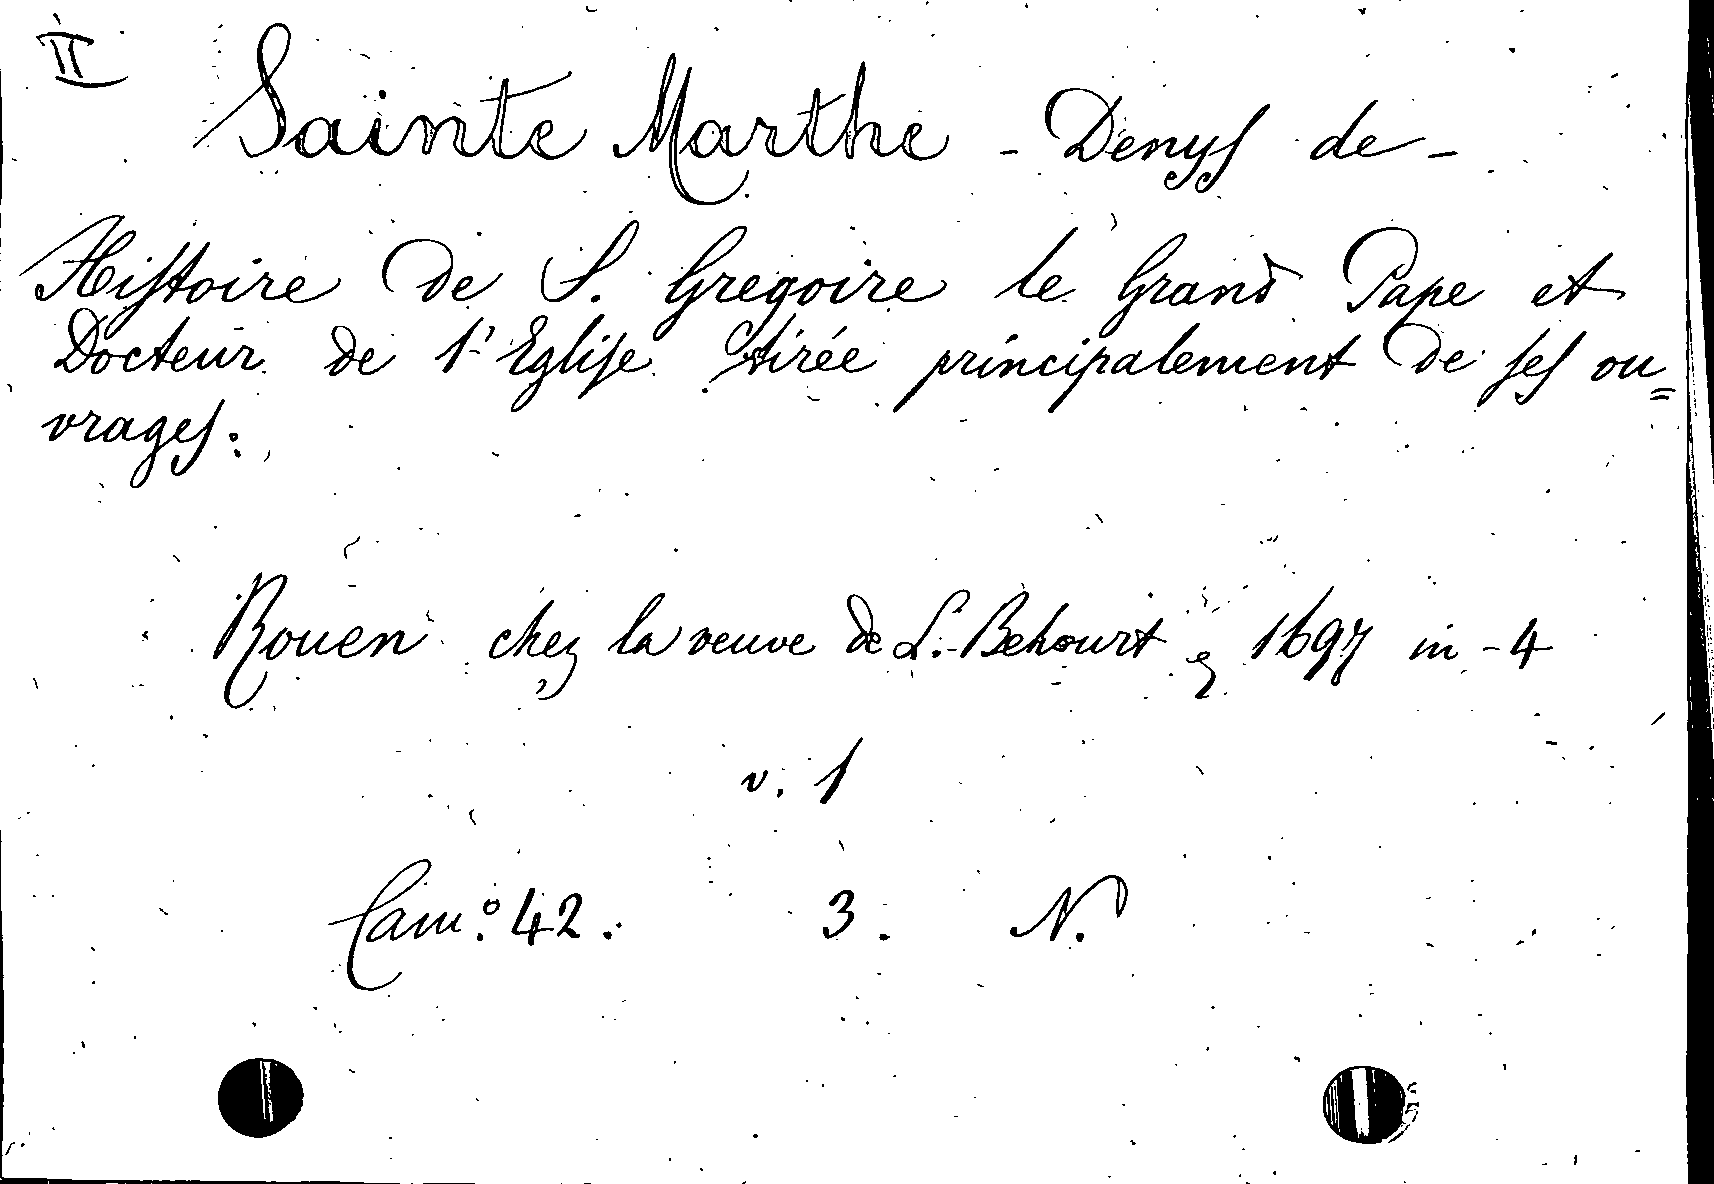 II
Sainte Marthe - Denyſ de -
Hiſtoire de S. Gregoire le Grand Pape et
Docteur de l'Egliſe tirée principalement de ſeſ ou=
vrageſ.
Rouen chez la veuve de L. Behourt 1697 in-4
v. 1
Cam.º 42. 3. N.